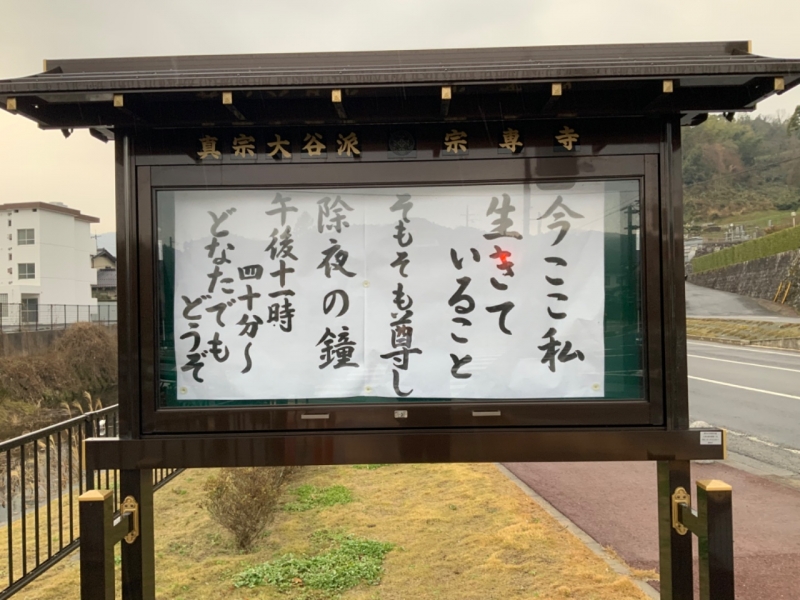 真宗大谷派 宗専寺
今ここ私
生きて
いること
そもそも尊し
除夜の鐘
午後十一時
四十分～
どなたでも
どうぞ